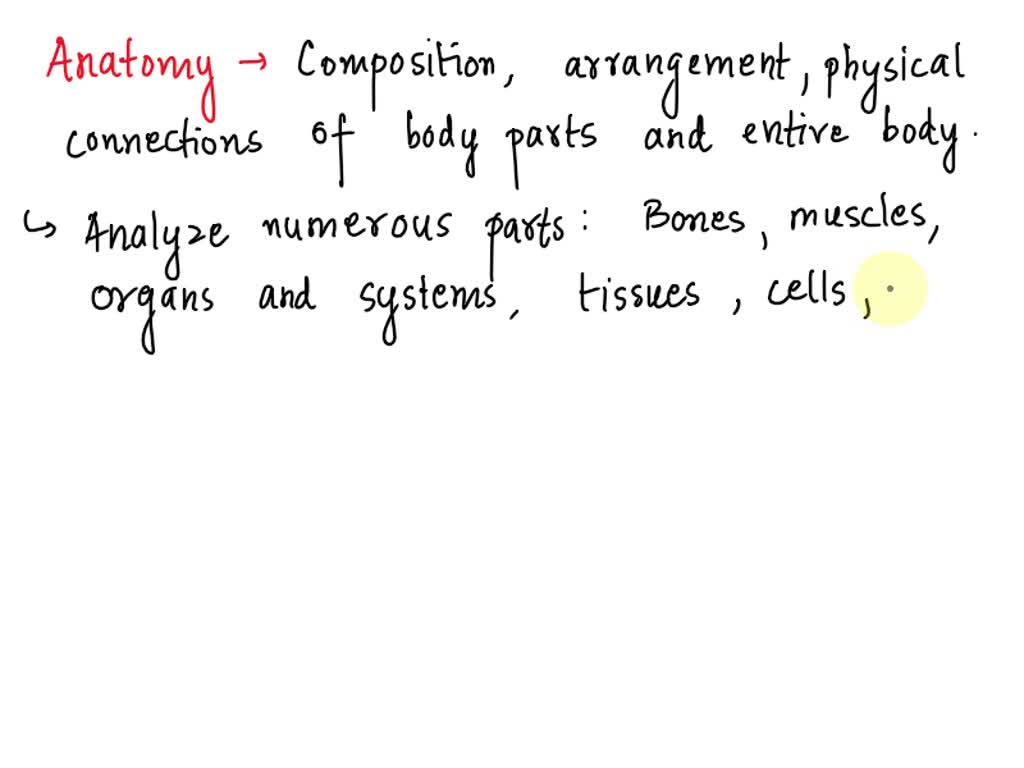 Anatomy → Composition, arrangement, physical
connections of body parts and entire body.
↳ Analyze numerous parts: Bones, muscles,
organs and systems, tissues, cells,